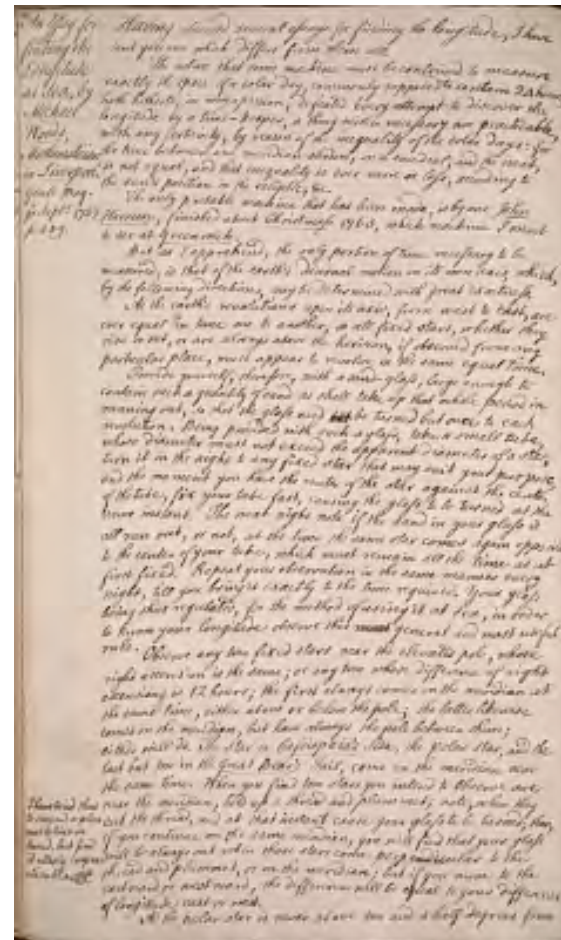 An Essay for
finding the
Longitude
at Sea, by
Michael
Woods,
Mathematician
in Liverpool
Gent. Mag.
for Septr. 1763
p. 429.
Having several essays for finding the longitude, I have
sent you one which differs from them all.
The notion that some machine must be contrived to measure
exactly the space of a solar day, commonly supposed to contain 24 hours,
hath hitherto, in my opinion, defeated every attempt to discover the
longitude by a time-keeper, a thing neither necessary nor practicable,
with any certainty, by reason of the inequality of the solar days: for
the time between one meridian shadow, or a sun-dial, and the next,
is not equal, and that inequality is ever more or less, according to
the sun's position in the ecliptic, &c.
The only portable machine that has been made, is by one John
Harrison, finished about Christmass 1763, which machine I went
to see at Greenwich.
But as I apprehend, the only portion of time necessary to be
measured, is that of the earth's diurnal motion on its own axis, which,
by the following directions, may be determined with great exactness.
As the earth's revolutions upon its axis, from west to east, are
ever equal in time one to another, so all fixed stars, whether they
rise or set, or are always above the horizon, if observed from any
particular place, must appear to revolve in the same equal time.
Provide yourself, therefore, with a sand-glass, large enough to
contain such a quantity of sand as shall take up that whole period in
running out, so that the glass need be turned but once to each
revolution. Being provided with such a glass, take a small tube,
whose diameter must not exceed the apparent diameter of a star,
turn it in the night to any fixed star that may suit your purpose,
and the moment you have the center of the star against the center
of the tube, fix your tube fast, causing the glass to be turned at the
same instant. The next night note if the sand in your glass is
all run out, or not, at the time the same star comes again opposite
to the center of your tube, which must remain all the time as at
first fixed. Repeat your observation in the same manner every
night, till you bring it exactly to the time required. Your glass
being thus regulated, for the method of using it at sea, in order
to know your longitude observe this general and most useful
rule.
Observe any two fixed stars near the elevated pole, whose
right ascension is the same; or any two whose difference of right
ascensions is 12 hours; the first always comes on the meridian at
the same time, either above or below the pole; the latter likewise
comes on the meridian, but have always the pole between them;
either will do. The star in Cassiopeia's side, the polar star, and the
last but two in the Great Bear's tail, come on the meridian near
the same time. When you find two stars you intend to observe are
near the meridian, hold up a thread and plummet; note, when they
cut the thread, and at that instant cause your glass to be turned; then,
if you continue on the same meridian, you will find that your glass
will be always out when those stars come perpendicular to the
thread and plummet, or on the meridian; but if you move to the
eastward or westward, the difference will be equal to your difference
of longitude, east or west.
As the polar star is never above two and a half degrees from